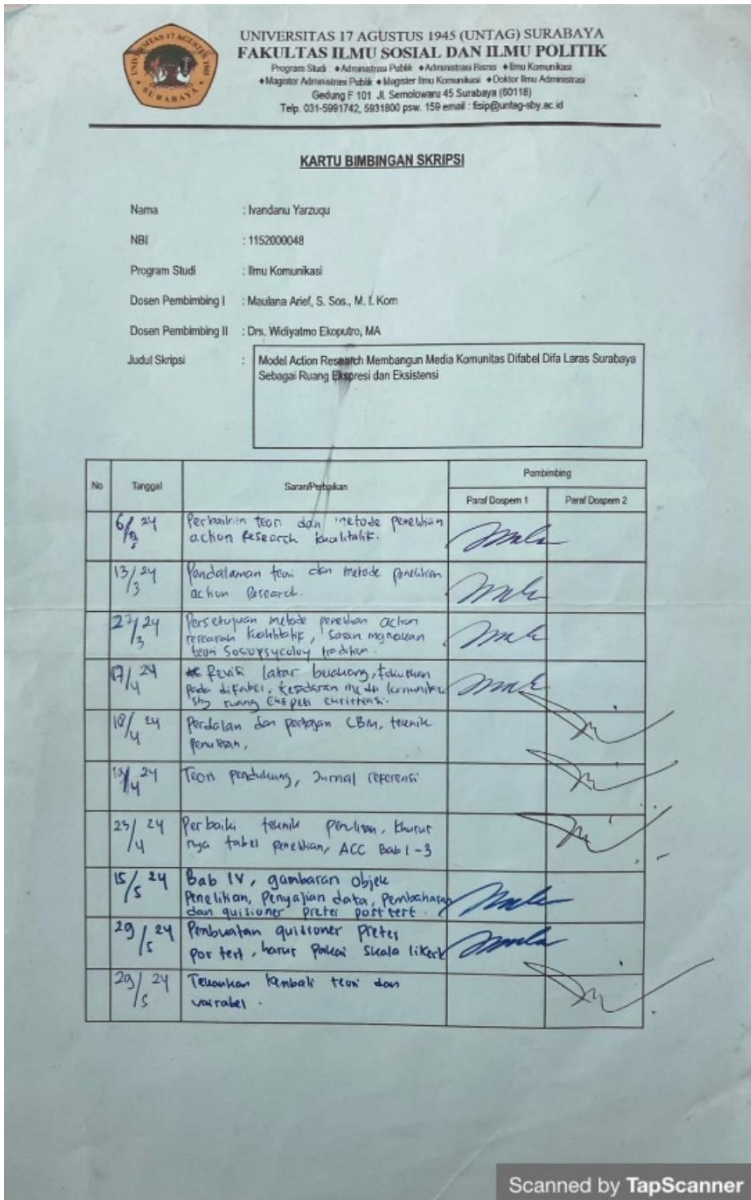 UNIVERSITAS 17 AGUSTUS 1945
SURABAYA
UNIVERSITAS 17 AGUSTUS 1945 (UNTAG) SURABAYA
FAKULTAS ILMU SOSIAL DAN ILMU POLITIK
Program Studi : ♦Administrasi Publik ♦Administrasi Bisnis ♦Ilmu Komunikasi
♦Magister Administrasi Publik ♦Magister Ilmu Komunikasi ♦Doktor Ilmu Administrasi
Gedung F 101 Jl. Semolowaru 45 Surabaya (60118)
Telp. 031-5991742, 5931800 psw. 159 email : fisip@untag-sby.ac.id
KARTU BIMBINGAN SKRIPSI
Nama : Ivandanu Yarzuqu
NBI : 1152000048
Program Studi : Ilmu Komunikasi
Dosen Pembimbing I : Maulana Arief, S. Sos., M. I. Kom
Dosen Pembimbing II : Drs. Widiyatmo Ekoputro, MA
Judul Skripsi : Model Action Research Membangun Media Komunitas Difabel Difa Laras Surabaya
Sebagai Ruang Ekspresi dan Eksistensi
No Tanggal Saran/Perbaikan Pembimbing
Paraf Dospem 1 Paraf Dospem 2
6/3 24 Perbaikan teori dan metode penelitian
action Research kualitatif.
13/3 24 Pendalaman teori dan metode penelitian
action Research.
27/3 24 Persetujuan metode penelitian action
research kualitatif, saran
teori tradition.
17/4 24 Revisi latar belakang,
pada difabel, komunitas
sbg ruang
18/4 24 dan CBM, teknik
penulisan,
24 Teori pendukung, Jurnal referensi
23/4 24 Perbaiki teknik penulisan, khusus
nya tabel penelitian, ACC Bab 1-3
15/5 24 Bab IV, gambaran objek
Penelitian, Penyajian data, Pembahasan
dan quisioner pretes post test.
29/5 24 Pembuatan quisioner Pretes
post test, harus pakai skala likert
29/5 24 Temukan kembali teori dan
variabel.
Scanned by TapScanner